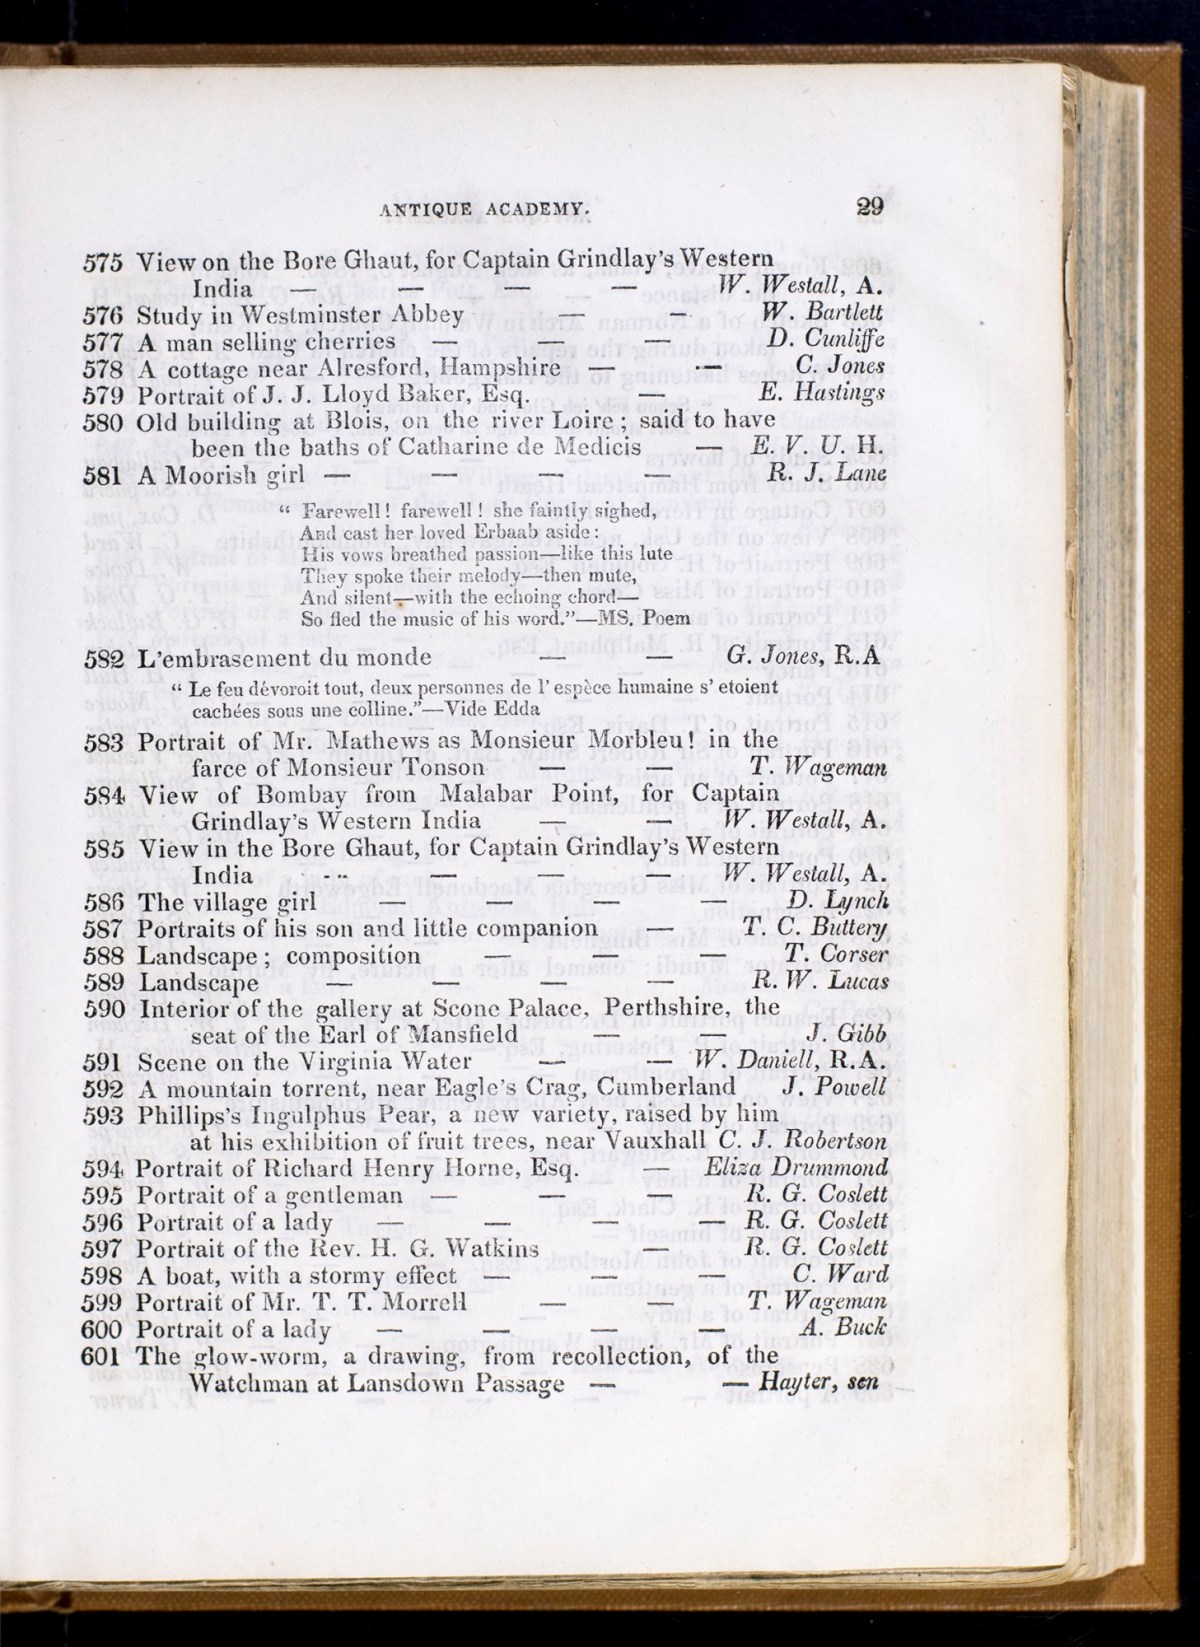 ANTIQUE ACADEMY. 29
575 View on the Bore Ghaut, for Captain Grindlay's Western
India — — — — W. Westall, A.
576 Study in Westminster Abbey — — W. Bartlett
577 A man selling cherries — — — D. Cunliffe
578 A cottage near Alresford, Hampshire — — C. Jones
579 Portrait of J. J. Lloyd Baker, Esq. — E. Hastings
580 Old building at Blois, on the river Loire ; said to have
been the baths of Catharine de Medicis — E. V. U. H.
581 A Moorish girl — — — — R. J. Lane
“ Farewell ! farewell ! she faintly sighed,
And cast her loved Erbaab aside :
His vows breathed passion—like this lute
They spoke their melody—then mute,
And silent—with the echoing chord—
So fled the music of his word.”—MS. Poem
582 L'embrasement du monde — — G. Jones, R.A
“ Le feu dévoroit tout, deux personnes de l' espèce humaine s' etoient
cachées sous une colline.”—Vide Edda
583 Portrait of Mr. Mathews as Monsieur Morbleu! in the
farce of Monsieur Tonson — — T. Wageman
584 View of Bombay from Malabar Point, for Captain
Grindlay's Western India — — W. Westall, A.
585 View in the Bore Ghaut, for Captain Grindlay's Western
India — — — — W. Westall, A.
586 The village girl — — — — D. Lynch
587 Portraits of his son and little companion — T. C. Buttery
588 Landscape ; composition — — — T. Corser
589 Landscape — — — — R. W. Lucas
590 Interior of the gallery at Scone Palace, Perthshire, the
seat of the Earl of Mansfield — — J. Gibb
591 Scene on the Virginia Water — — W. Daniell, R.A.
592 A mountain torrent, near Eagle's Crag, Cumberland J. Powell
593 Phillips's Ingulphus Pear, a new variety, raised by him
at his exhibition of fruit trees, near Vauxhall C. J. Robertson
594 Portrait of Richard Henry Horne, Esq. — Eliza Drummond
595 Portrait of a gentleman — — — R. G. Coslett
596 Portrait of a lady — — — — R. G. Coslett
597 Portrait of the Rev. H. G. Watkins — R. G. Coslett
598 A boat, with a stormy effect — — — C. Ward
599 Portrait of Mr. T. T. Morrell — — T. Wageman
600 Portrait of a lady — — — — A. Buck
601 The glow-worm, a drawing, from recollection, of the
Watchman at Lansdown Passage — — Hayter, sen